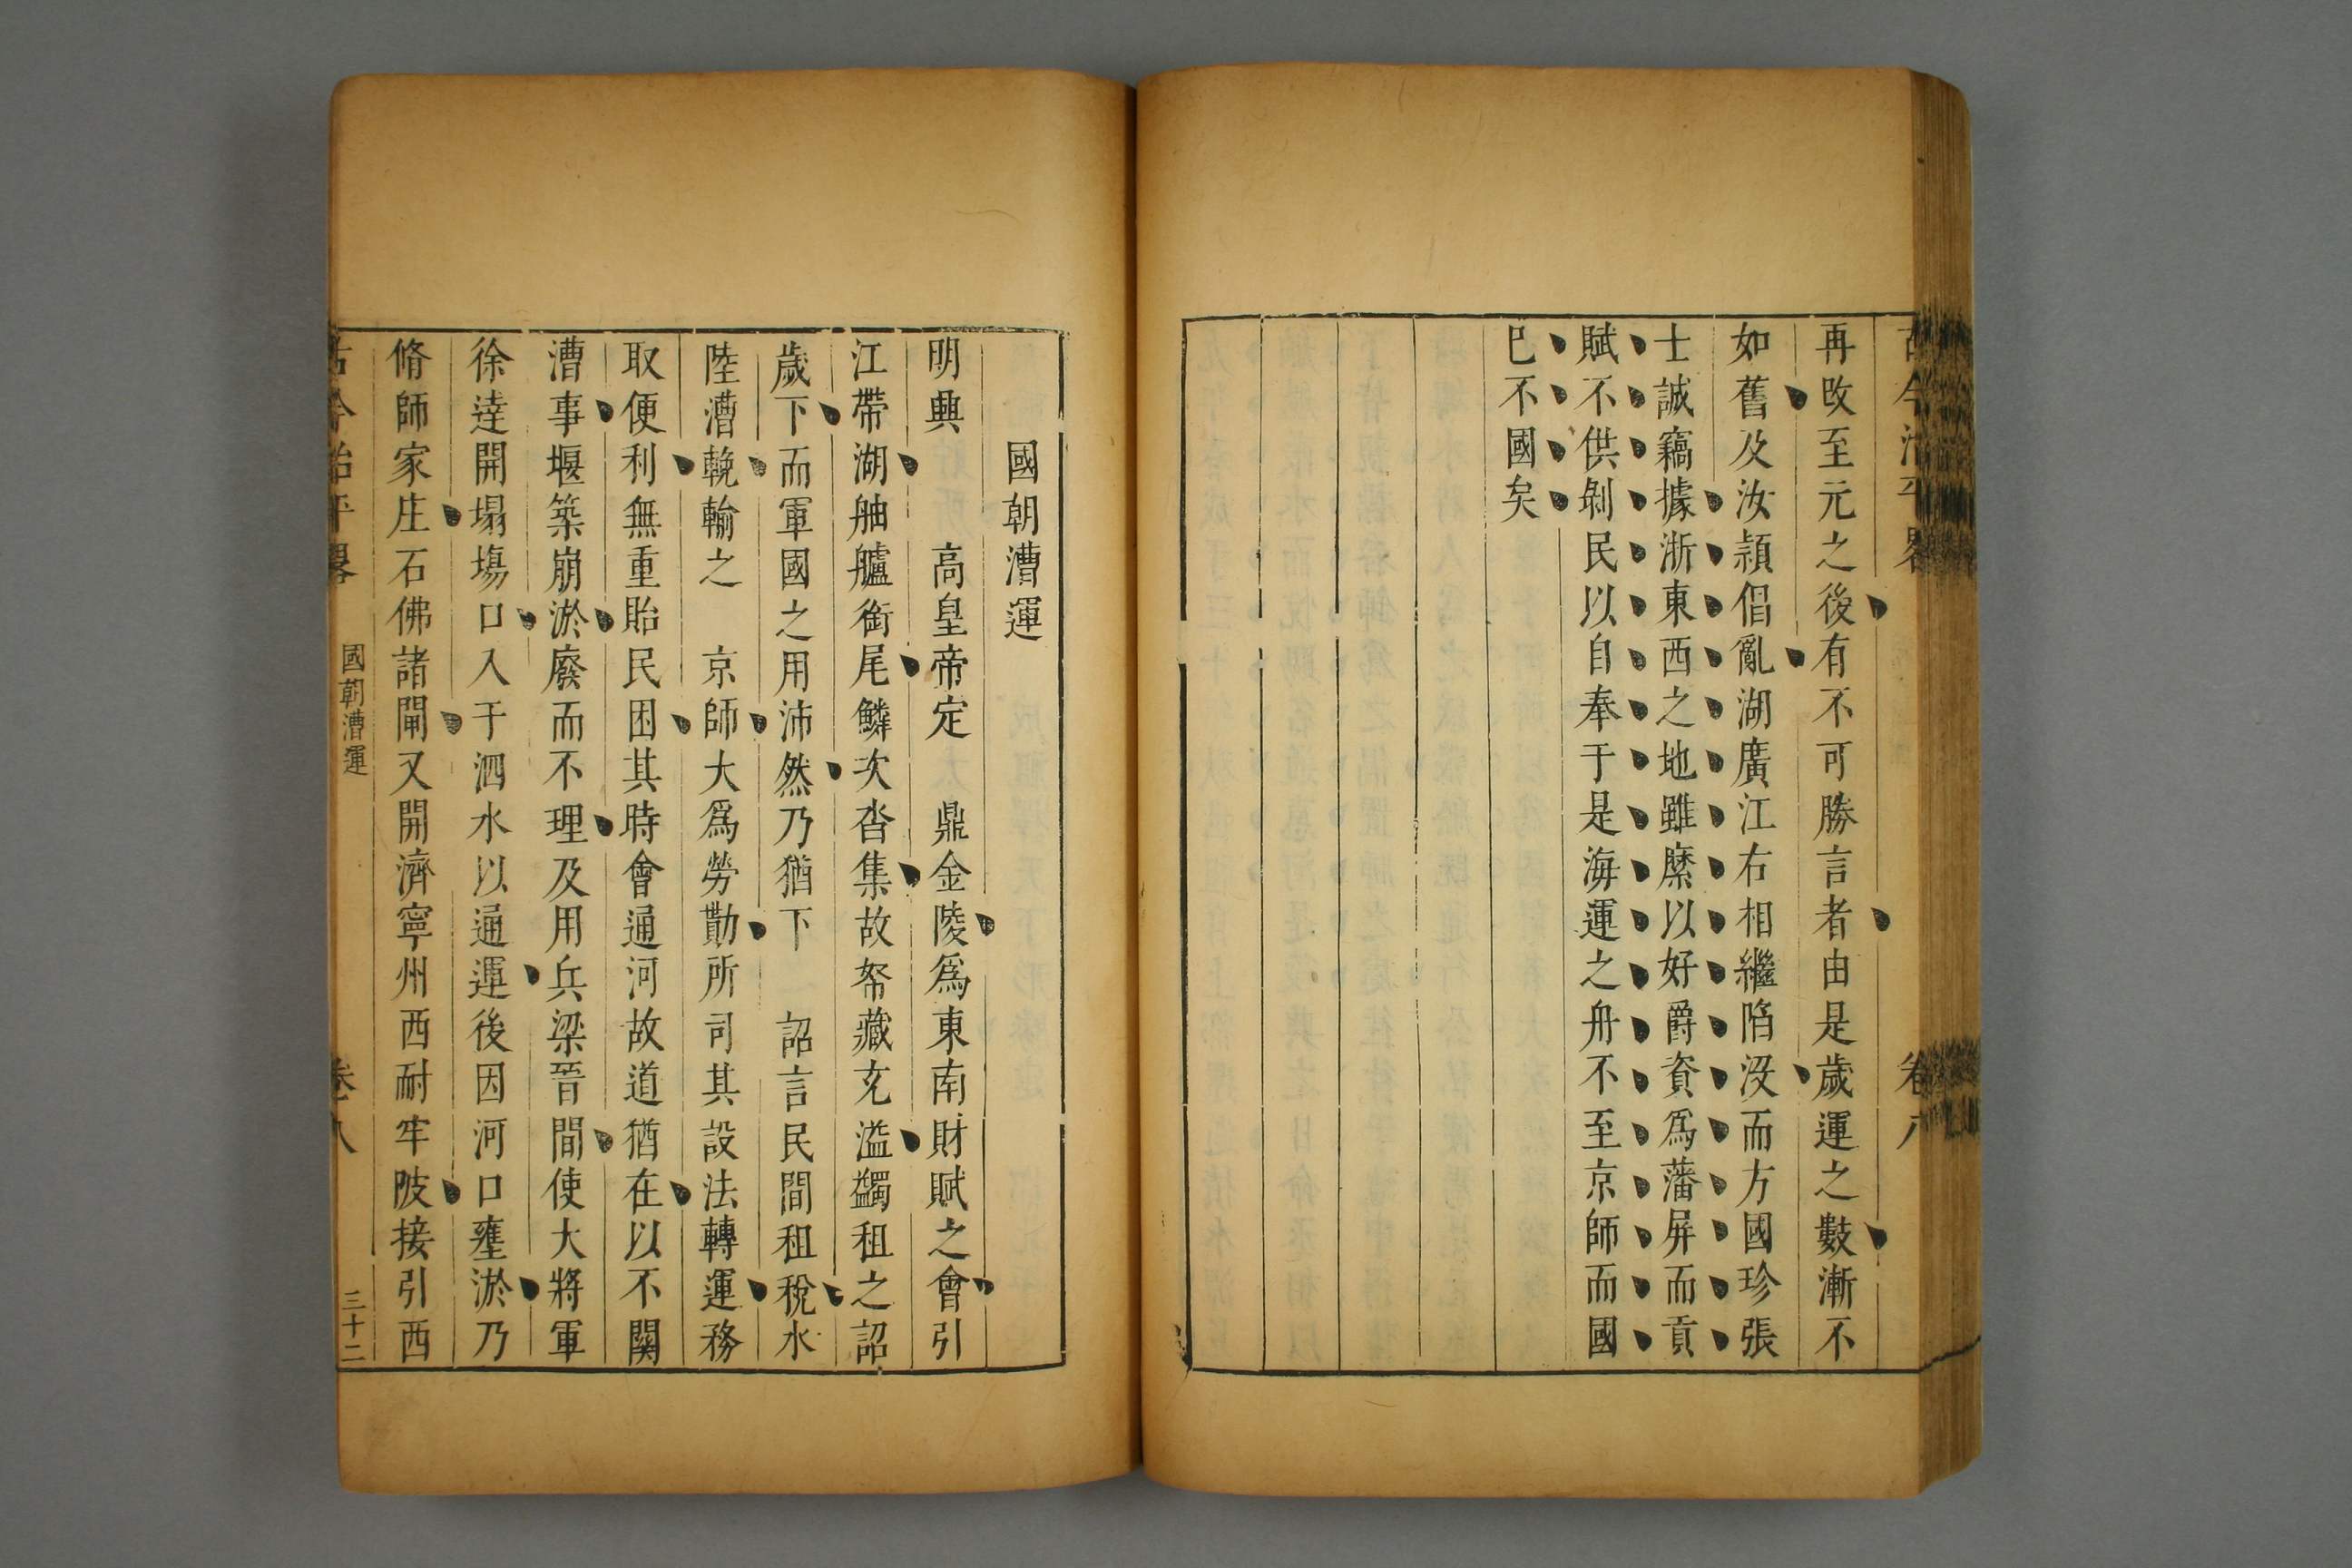 再改至元之後有不可勝言者由是歲運之數漸不
如舊及汝潁倡亂湖廣江右相繼陷沒而方國珍張
士誠竊據浙東西之地雖縻以好爵資爲藩屏而貢
賦不供剝民以自奉于是海運之舟不至京師而國
已不國矣
國朝漕運
明興 高皇帝定 鼎金陵爲東南財賦之會引
江帶湖舳艫銜尾鱗次沓集故帑藏充溢蠲租之詔
歲下而軍國之用沛然乃猶下 詔言民間租稅水
陸漕輓輸之 京師大爲勞勩所司其設法轉運務
取便利無重貽民困其時會通河故道猶在以不關
漕事堰築崩淤廢而不理及用兵梁晉間使大將軍
徐達開塌塲口入于泗水以通運後因河口壅淤乃
脩師家庄石佛諸閘又開濟寧州西耐牢陂接引西
古今治平畧 國朝漕運 卷八 三十二